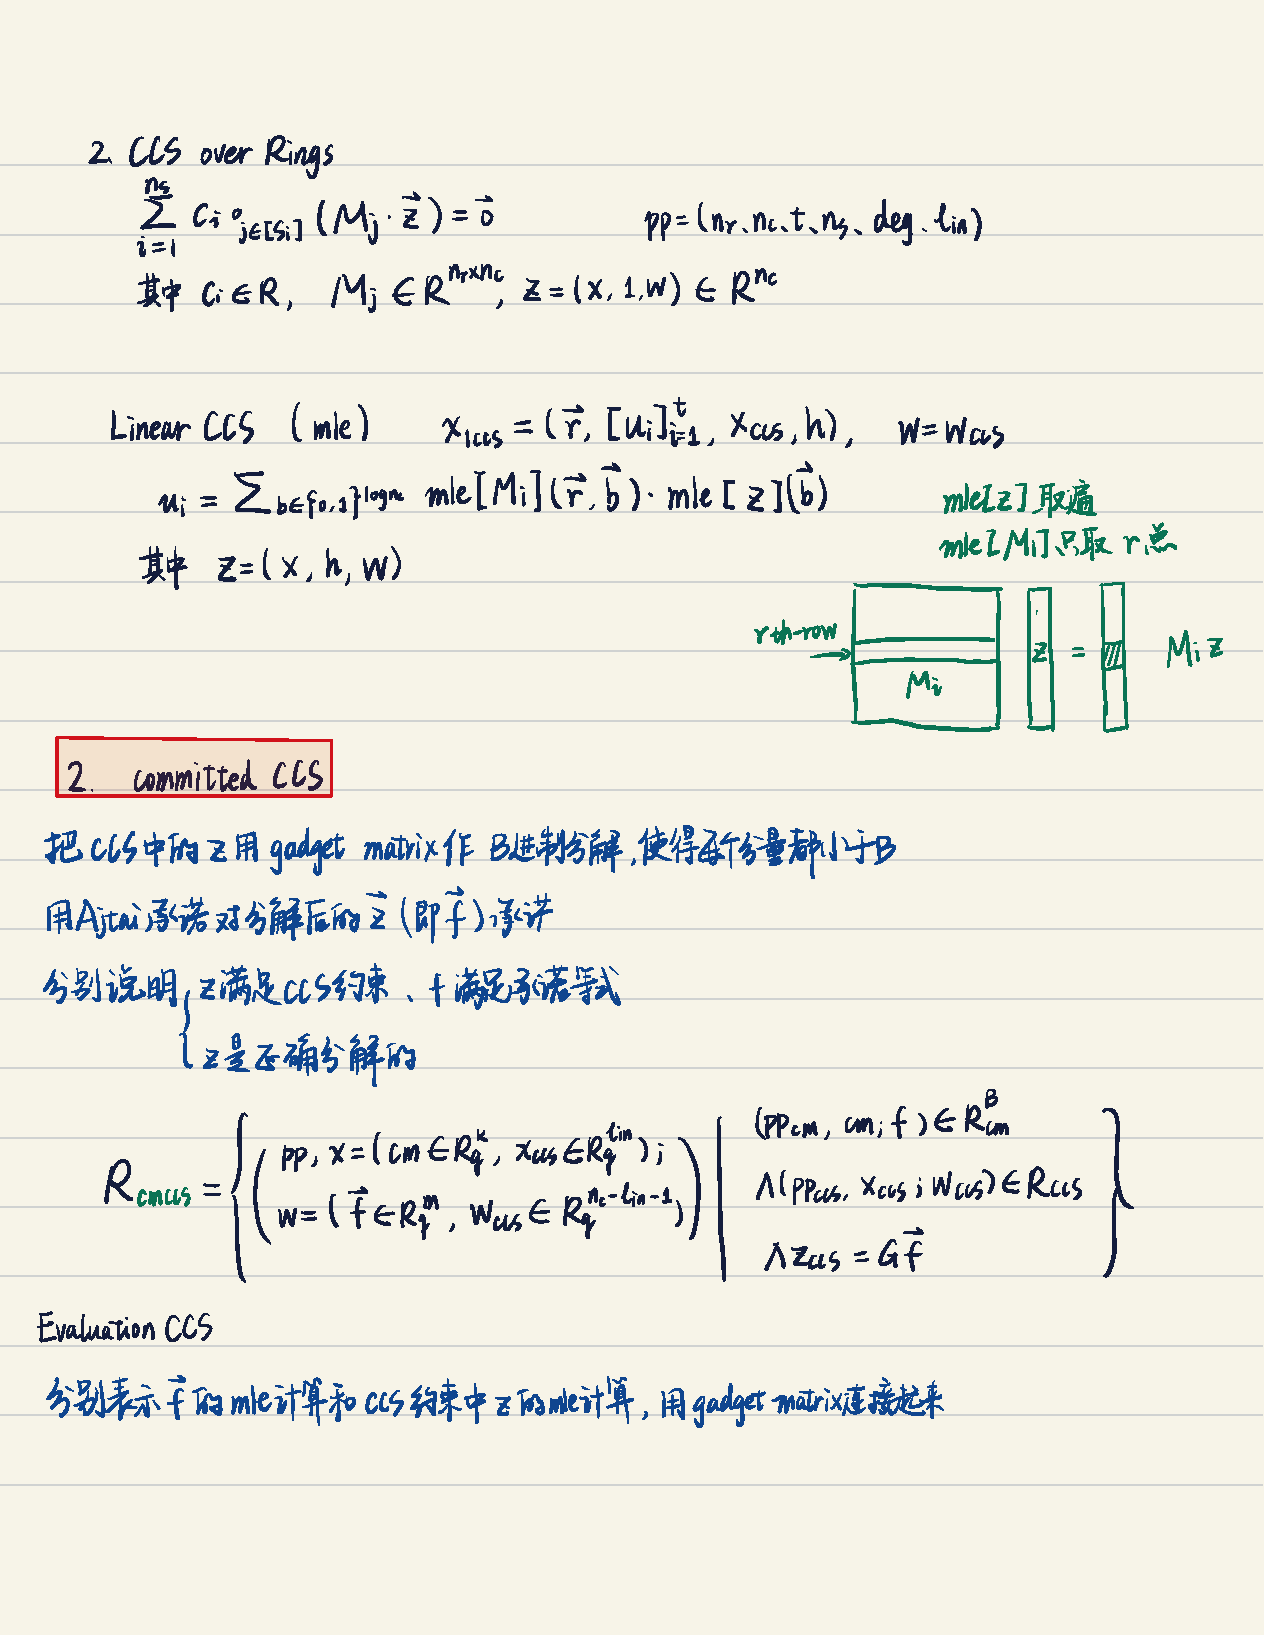 2. CCS over Rings
∑_{i=1}^{n_s} c_i ∘_{j∈[S_i]} (M_j · z⃗) = 0⃗    pp = (n_r, n_c, t, n_s, deg, l_in)
其中 c_i ∈ R, M_j ∈ R^{n_r×n_c}, z = (x, 1, w) ∈ R^{n_c}
Linear CCS (mle)    x_{lccs} = (r⃗, [u_i]_{i=1}^t, x_{ccs}, h), w = w_{ccs}
u_i = ∑_{b∈{0,1}^{log n_c}} mle[M_i](r⃗, b⃗) · mle[z](b⃗)
其中 z = (x, h, w)
mle[z] 取遍
mle[M_i] 只取 r 点
rth-row
M_i
z
=
M_i z
2. committed CCS
把 CCS 中的 z 用 gadget matrix 作 B进制分解, 使得每个分量都小于B
用Ajtai承诺对分解后的 z⃗ (即 f⃗) 承诺
分别说明 { z满足CCS约束、f 满足承诺等式
z是正确分解的
R_{cmccs} = { ( pp, x = (cm ∈ R_q^k, x_{ccs} ∈ R_q^{l_in}); w = (f⃗ ∈ R_q^m, w_{ccs} ∈ R_q^{n_c-l_in-1}) ) |
(pp_{cm}, cm; f) ∈ R_{cm}^B
∧ (pp_{ccs}, x_{ccs}; w_{ccs}) ∈ R_{ccs}
∧ z_{ccs} = G f⃗ }
Evaluation CCS
分别表示 f⃗ 的 mle计算和 CCS 约束中 z 的 mle计算, 用 gadget matrix连接起来